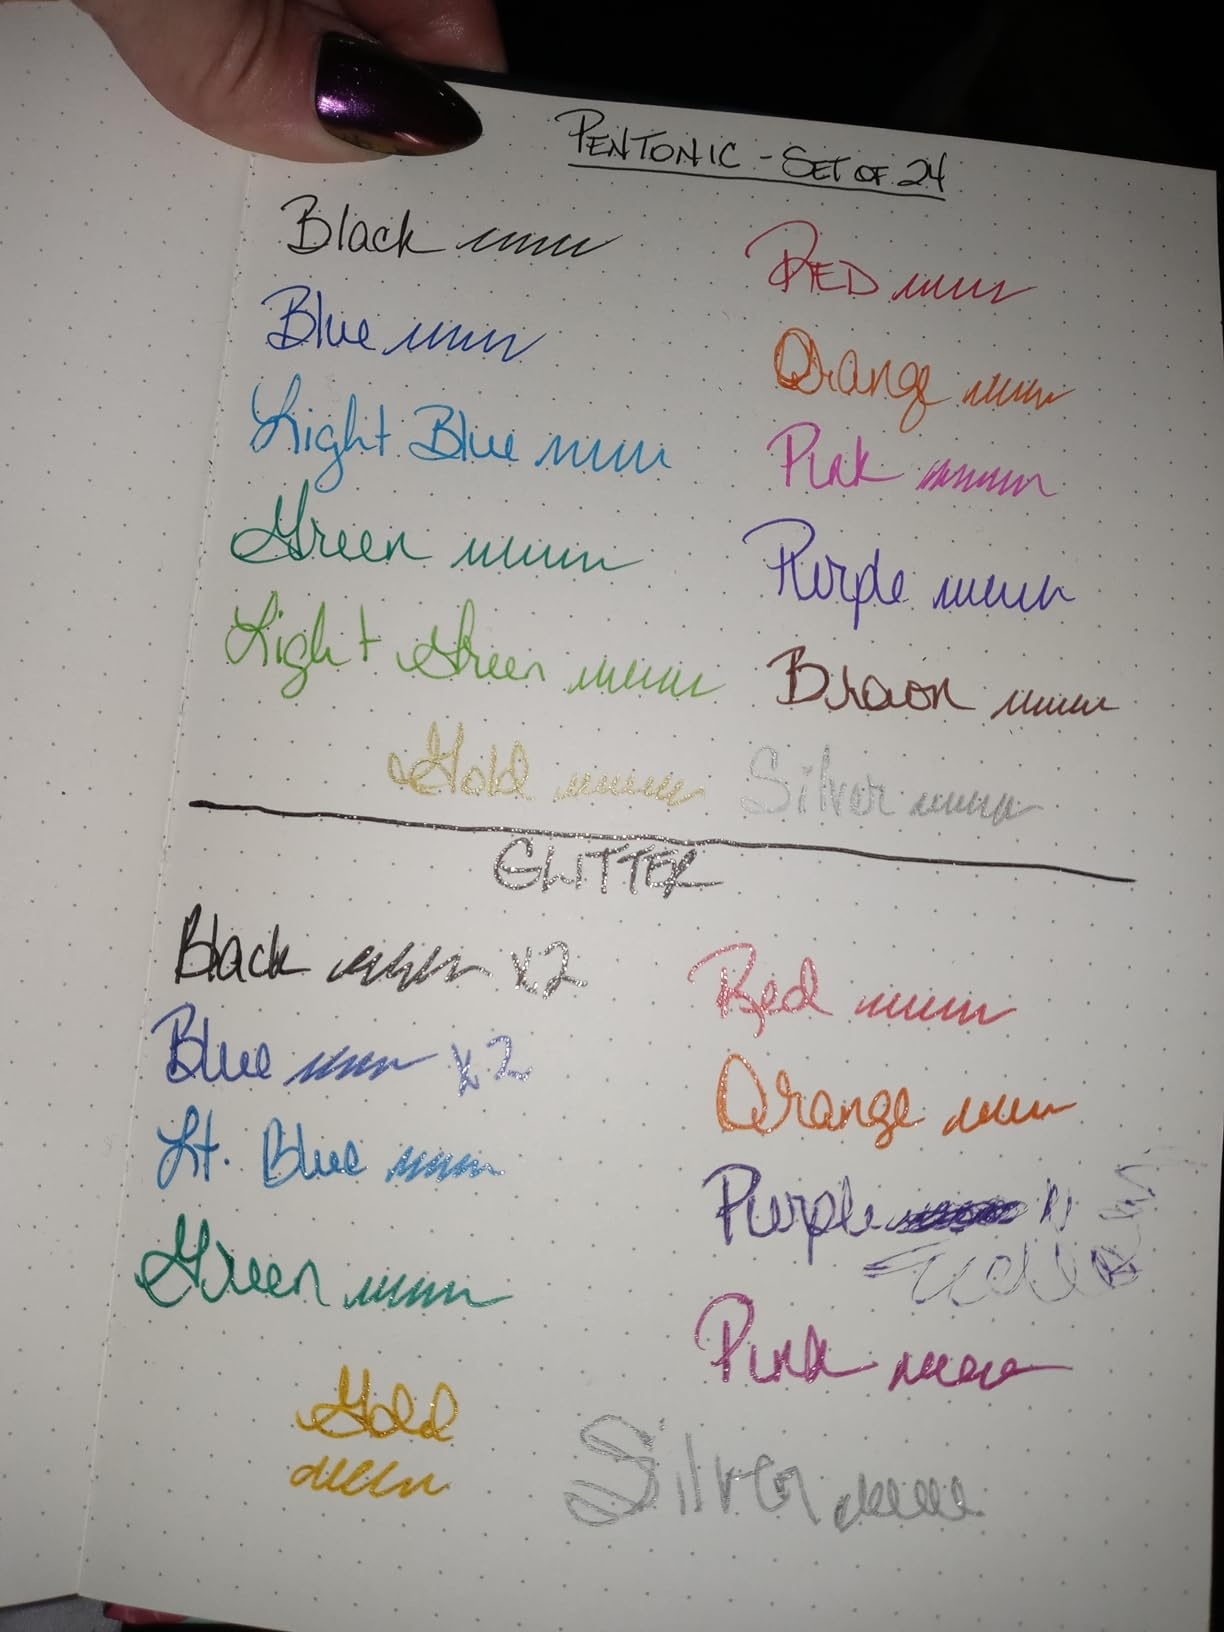 PENTONIC - SET OF 24
Black
RED
Blue
Orange
Light Blue
Pink
Green
Purple
Light Green
Brown
Gold
Silver
GLITTER
Black x2
Red
Blue x2
Orange
Lt. Blue
Purple
Green
Pink
Gold
Silver